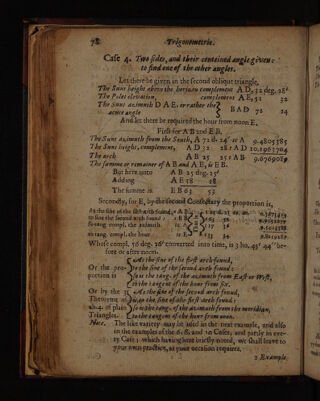 78 Trigonometrie.
Case 4. Two sides, and their contained angle given:
to find one of the other angles.
Let there be given in the second oblique triangle,
The Suns height above the horizon complement A D, 32 deg. 28'
The Poles elevation, complement A E, 51 32
The Suns azimuth D A E, or rather the
acute angle B A D 72 24
And let there be required the hour from noon E.
First for A B and E B.
The Suns azimuth from the South, A 72 d. 24' s A 9.4805385
The Suns height, complement, A D 32 28 t A D
The arch A B 25 25 t A B
The summe or remainer of A B and A E, is E B.
But here unto A B 25 deg. 25'
Adding A E 38 28
The summe is E B 63 53
Secondly, for E, by the second Consectary the proportion is,
As the sine of the first arch found, A B
to sine the second arch found: s E B
So tang. compl. the azimuth
to tang. compl. the hour
Whose compl. 56 deg. 26' converted into time, is 3 ho. 45' 44" before
or after noon.
Or the proportion is
As the sine of the first arch found,
to the sine of the second arch found:
so is the tang. of the azimuth from East or West,
to the tangent of the hour from six.
Or by the
Theorems of
ch. 4. of plain
Triangles.
As the sine of the second arch found,
is to the sine of the first arch found:
so is the tang. of the azimuth from the meridian,
to the tangent of the hour from noon.
Note. The like variety may be used in the next example, and also
in the examples of the 6. 8. and 10 Cases, and partly in every
Case; which having here briefly noted, we shall leave to
your own practice, as your occasion requires.
2 Example.